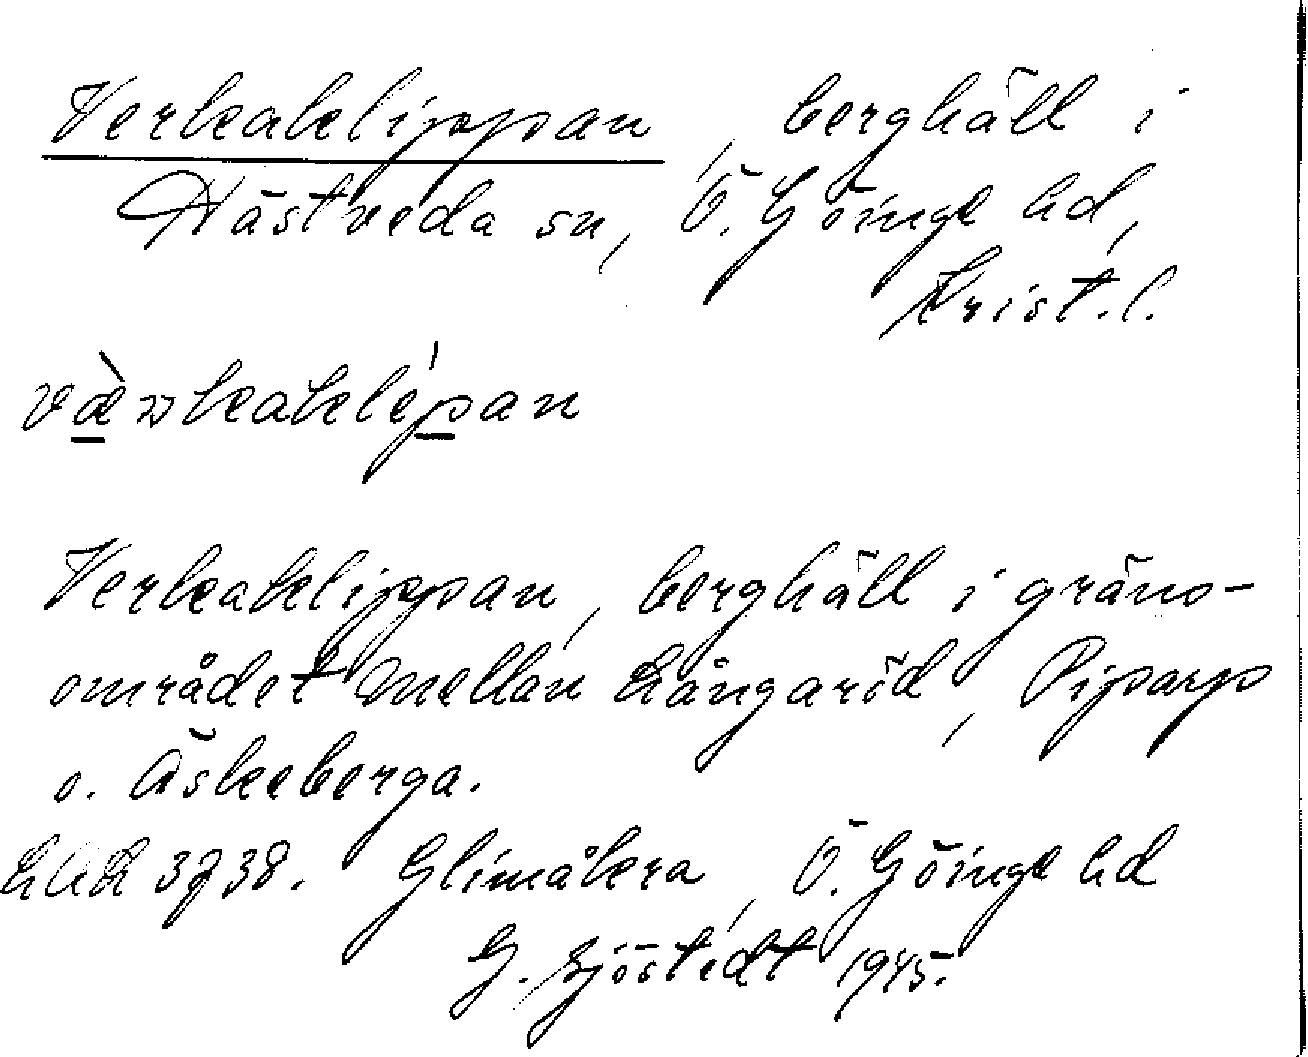 Verkaklippan, berghäll i
Hästveda sn, Ö. Göinge hd,
Krist. l.
væ̀rkaklépan
Verkaklippan, berghäll i gräns-
området mellan Långaröd, Piparp
o. Äskeberga.
LAL 3738. Glimåkra, Ö. Göinge hd
G. Sjöstedt 1945.